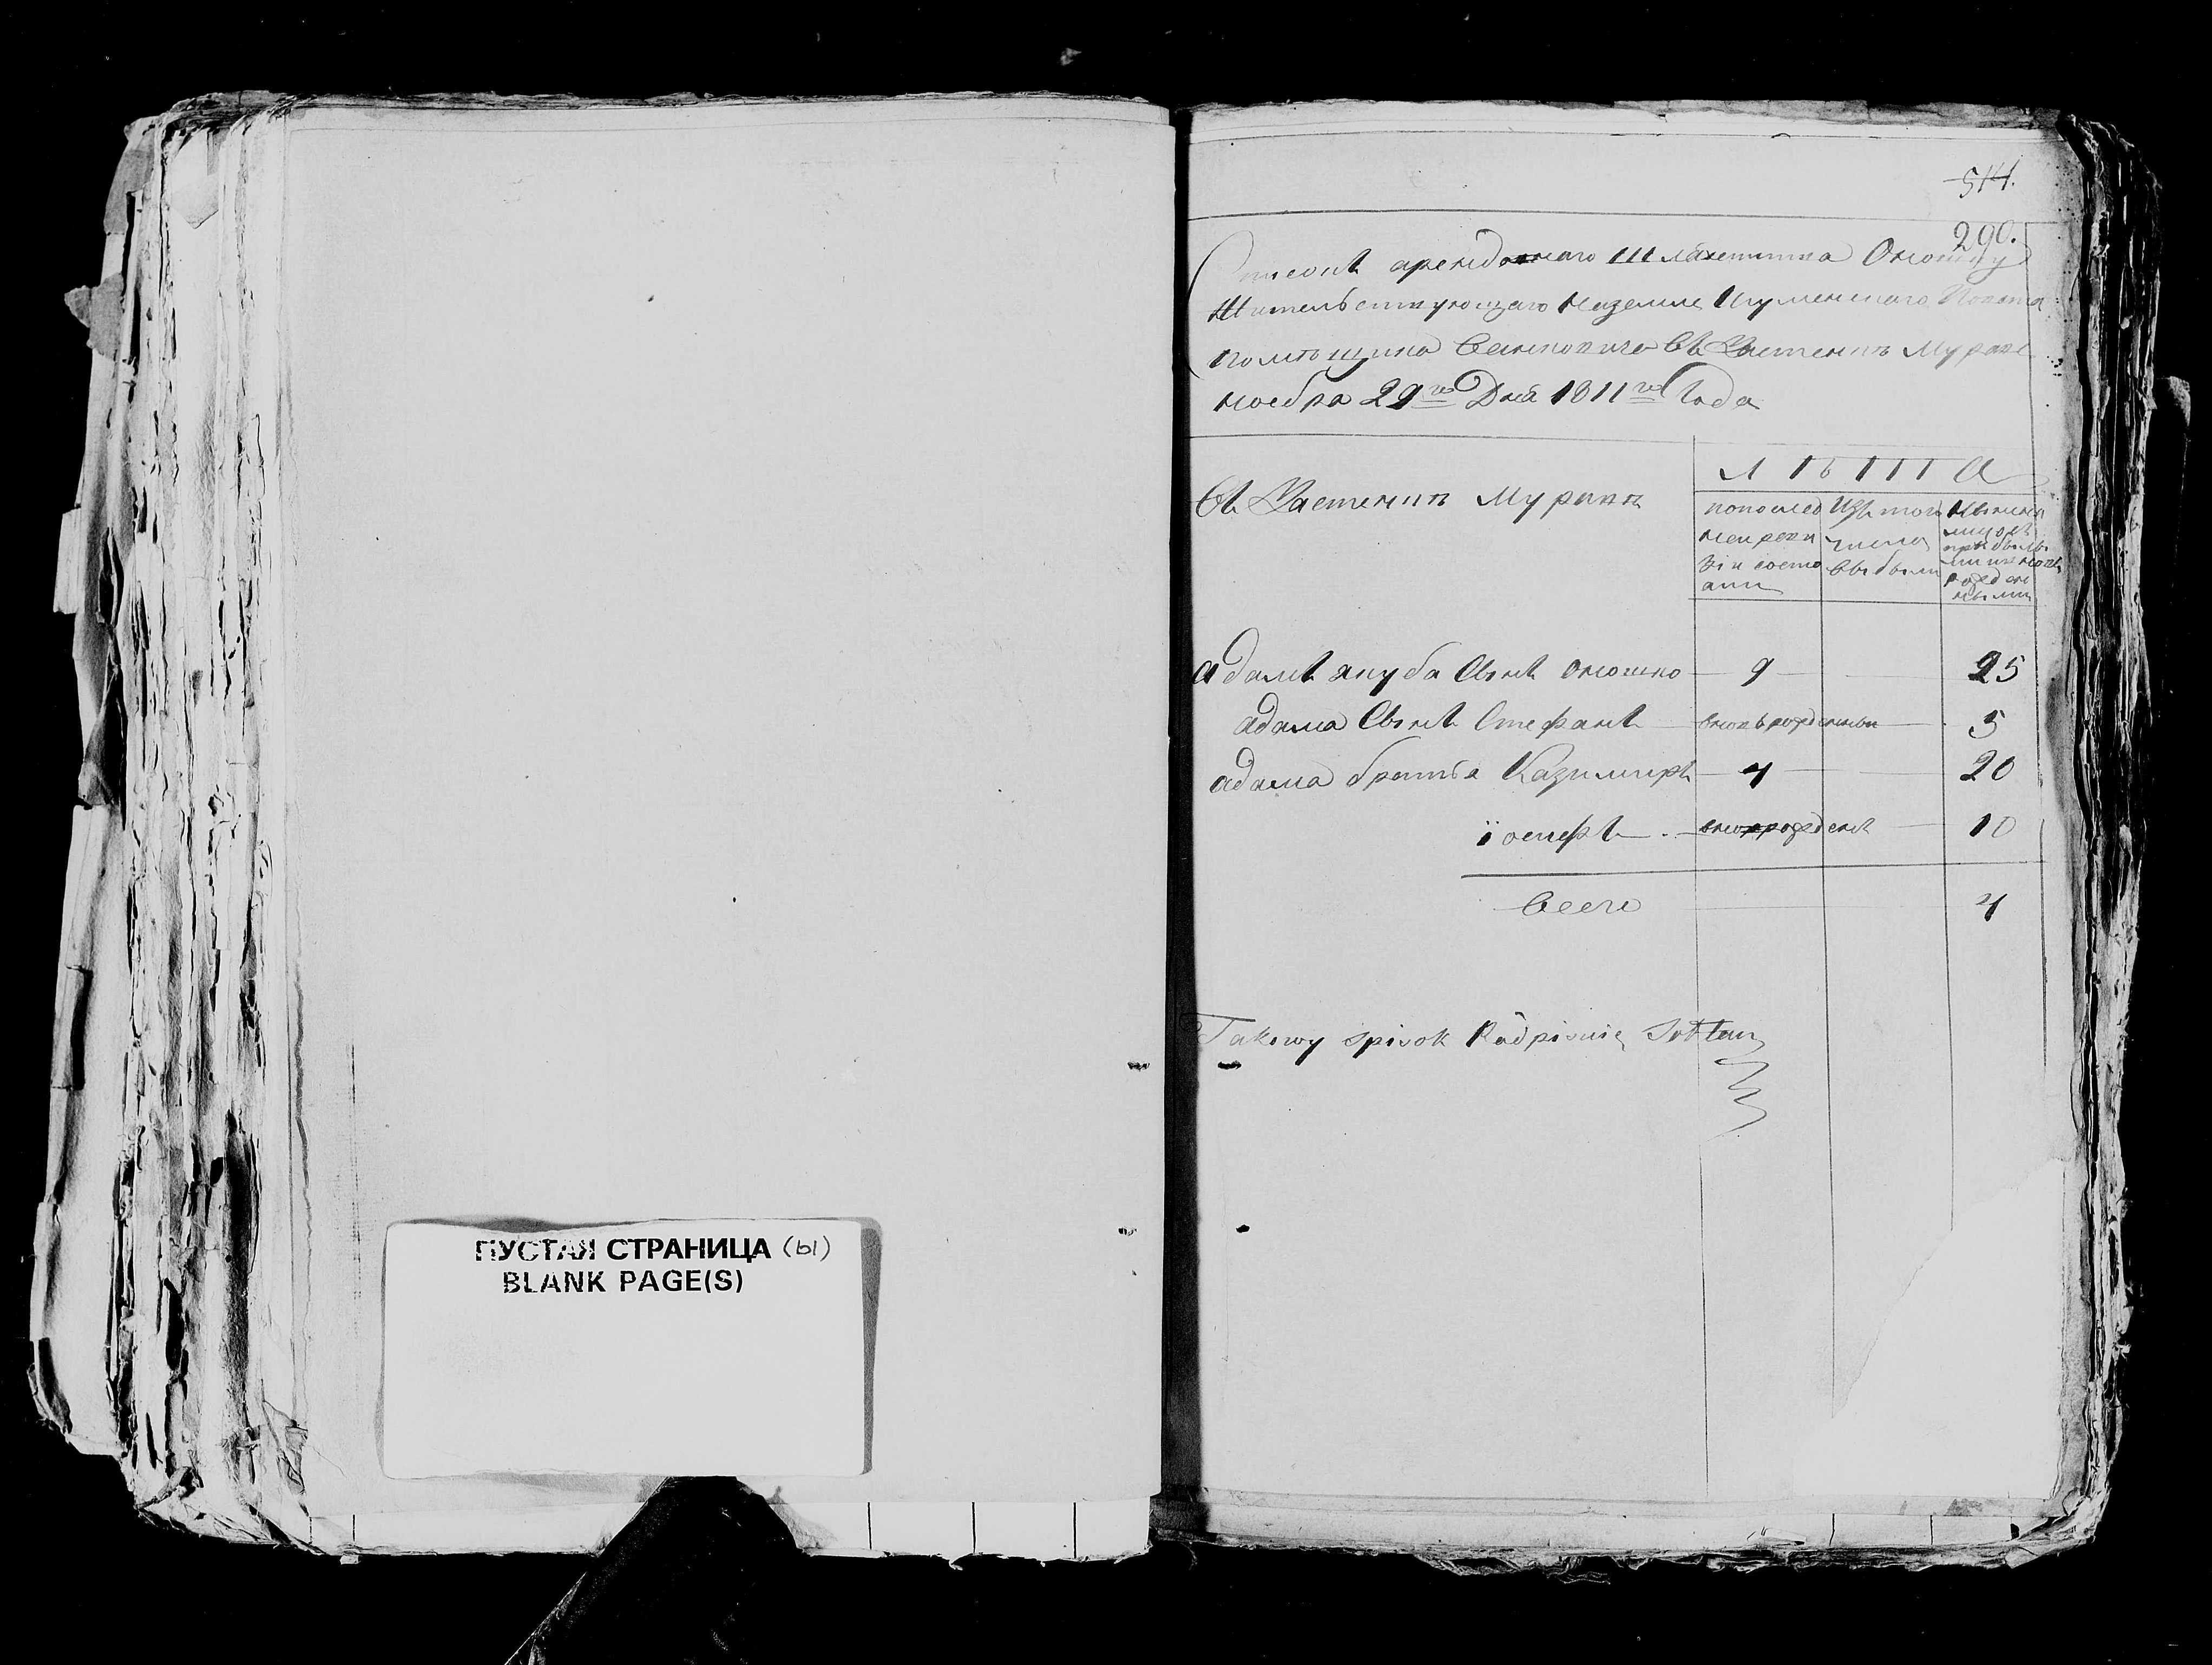 ПУСТАЯ СТРАНИЦА (ы)
BLANK PAGE(S)
514.
290.
Списокъ арендовнаго Шляхтича Оношку
Жительствующаго наземле Игуменскаго Повета
помѣщика Ваньковича въ Застенкѣ Мураве
ноебра 29го Дня 1811го Года
въ Застенкѣ Муравѣ
Лѣта
попослед
ней реви
зіи состо
али
Изъ того
числа
выбыли
Ныне
адамъ якуба Сынъ оношко 9 25
адама Сынъ Стефанъ вновьрожденны 5
адама братья Казимиръ 4 20
їосифъ вноворожденъ 10
Всего 4
Takowy spisok Podpisuię Sottan